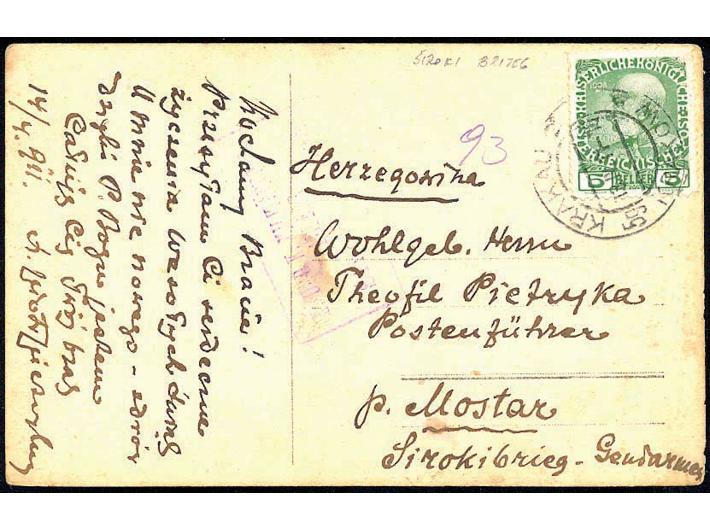 Kochany Bracie!
Przesyłam Ci serdeczne
życzenia Wesołych Świąt
U mnie nic nowego - zdrów
dzięki P. Bogu jestem
Całuję Cię Twój brat
14/4. 911.
Široki Brijeg
93
Herzegowina
Wohlgeb. Herrn
Theofil Pietryka
Postenführer
p. Mostar
Sirokibrieg - Gendarmer
KAISERLICHE KÖNIGLICHE
ÖSTERREICHISCHE
5 HELLER 5
KRAKAU